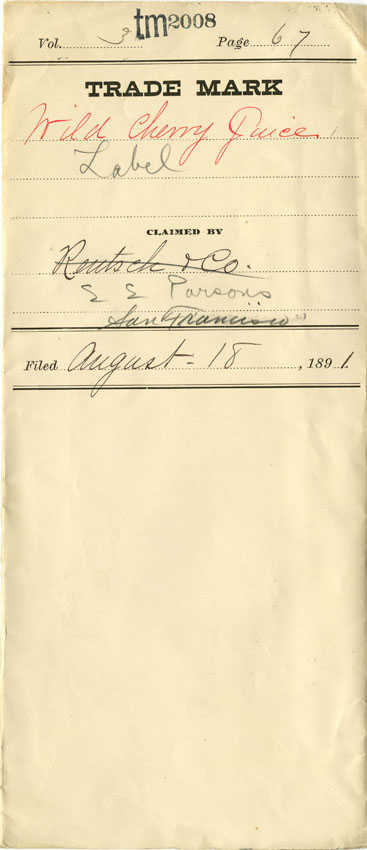 tm2008
Vol. 3 Page 67
TRADE MARK
Wild Cherry Juice
Label
CLAIMED BY
Rentsch & Co.
E E Parsons
San Francisco
Filed August 18, 1891.